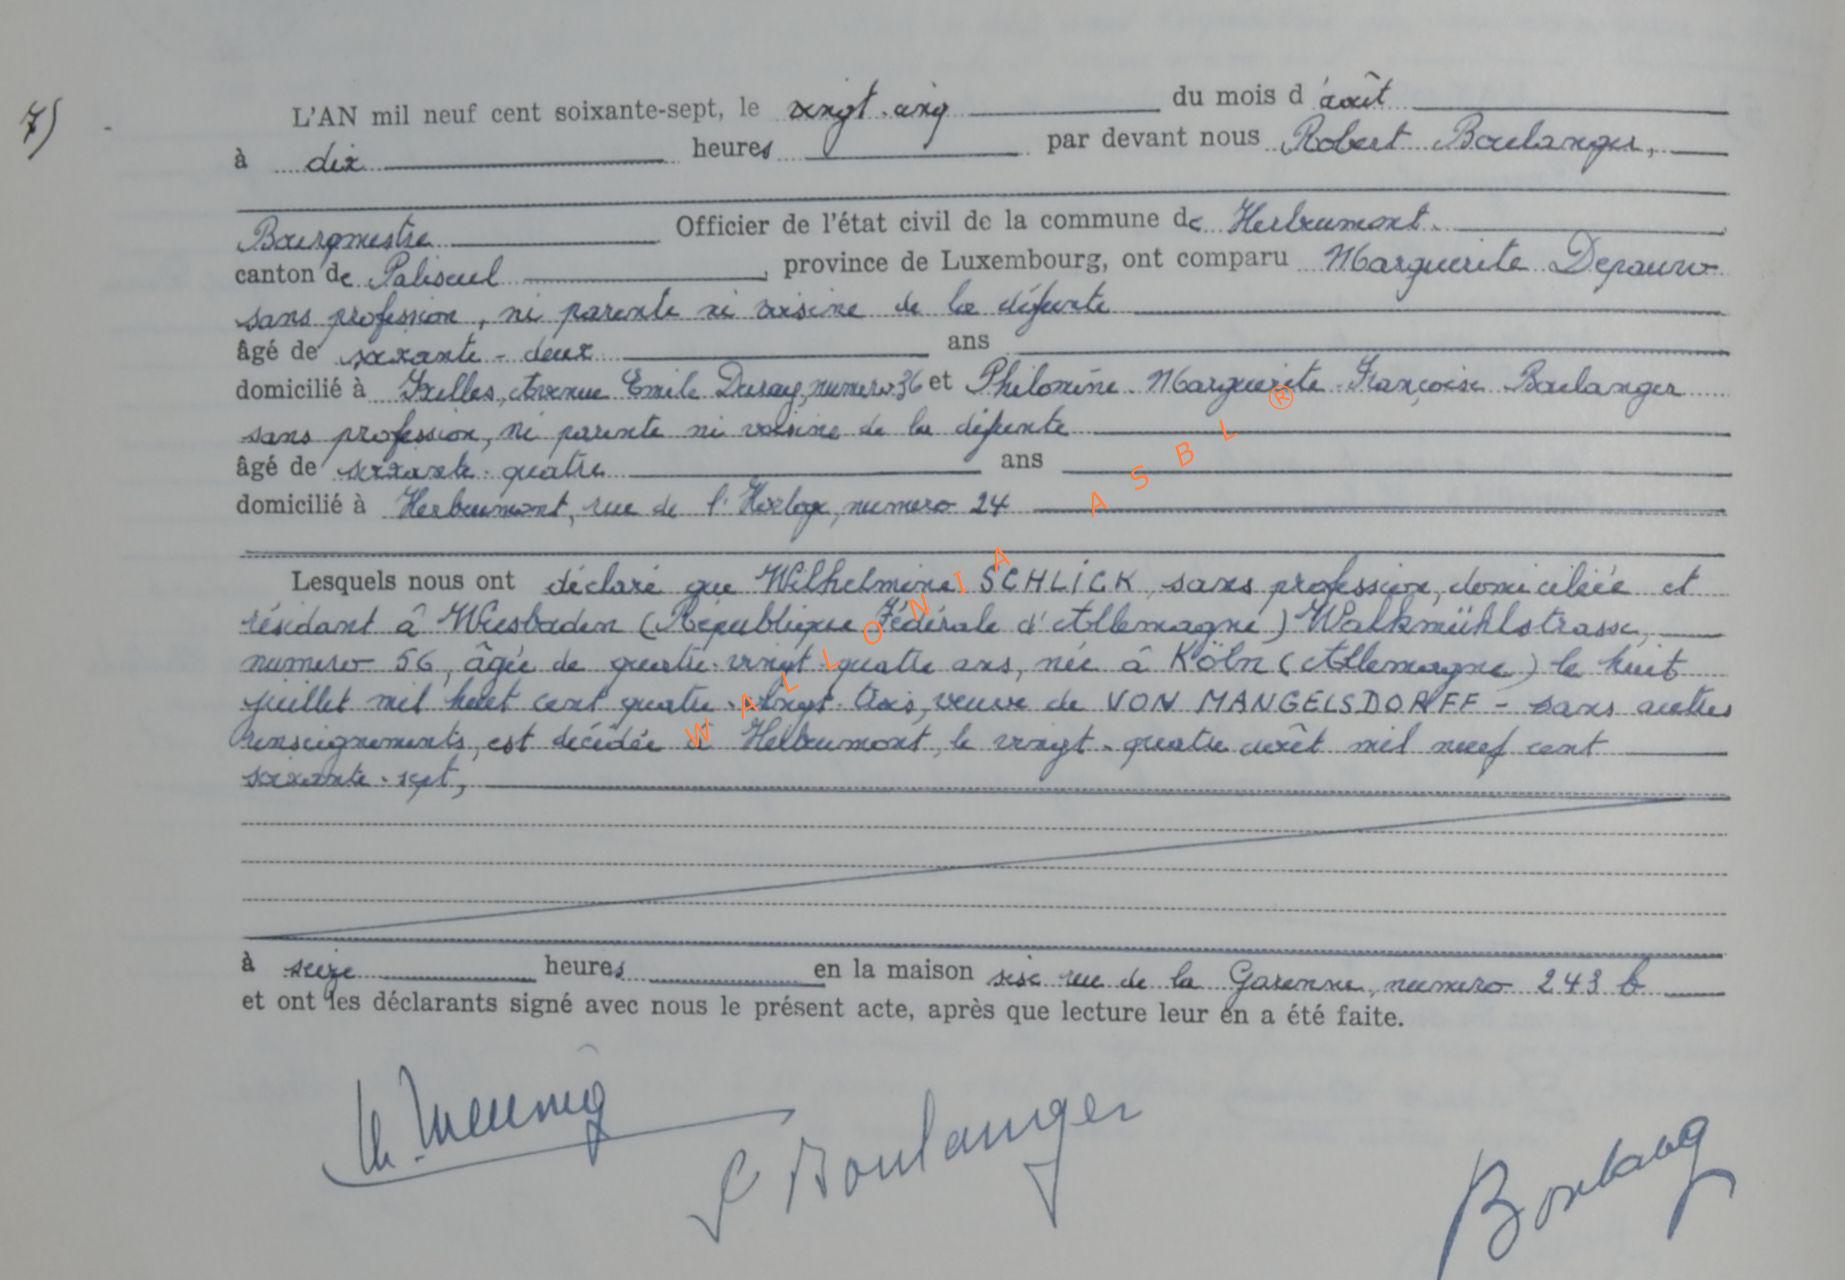 7)
L'AN mil neuf cent soixante-sept, le vingt-cinq du mois d'août
à dix heures par devant nous Robert Boulanger,
Bourgmestre Officier de l'état civil de la commune de Herbeumont.
canton de Paliseul, province de Luxembourg, ont comparu Marguerite Depauw
sans profession, ni parente ni voisine de la défunte
âgé de soixante-deux ans
domicilié à Ixelles, Avenue Emile Duray, numéro 36 et Philomène Marguerite Françoise Boulanger
sans profession, ni parente ni voisine de la défunte
âgé de soixante-quatre ans
domicilié à Herbeumont, rue de l'Horloge, numéro 24
Lesquels nous ont déclaré que Wilhelmine SCHLICK, sans profession, domiciliée et
résidant à Wiesbaden (République Fédérale d'Allemagne) Walkmühlstrasse,
numéro 56, âgée de quatre-vingt-quatre ans, née à Köln (Allemagne) le huit
juillet mil huit cent quatre-vingt-trois, veuve de VON MANGELSDORFF - sans autres
renseignements, est décédée à Herbeumont, le vingt-quatre août mil neuf cent
soixante-sept,
à seize heures en la maison sise rue de la Garenne, numéro 243 b
et ont les déclarants signé avec nous le présent acte, après que lecture leur en a été faite.
Boulanger
WALLONIA ASBL ®